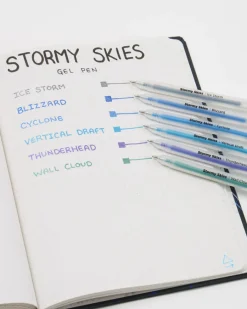 STORMY SKIES
GEL PEN
ICE STORM
BLIZZARD
CYCLONE
VERTICAL DRAFT
THUNDERHEAD
WALL CLOUD
Stormy Skies
Stormy Skies
Stormy Skies
Stormy Skies
Stormy Skies
Stormy Skies